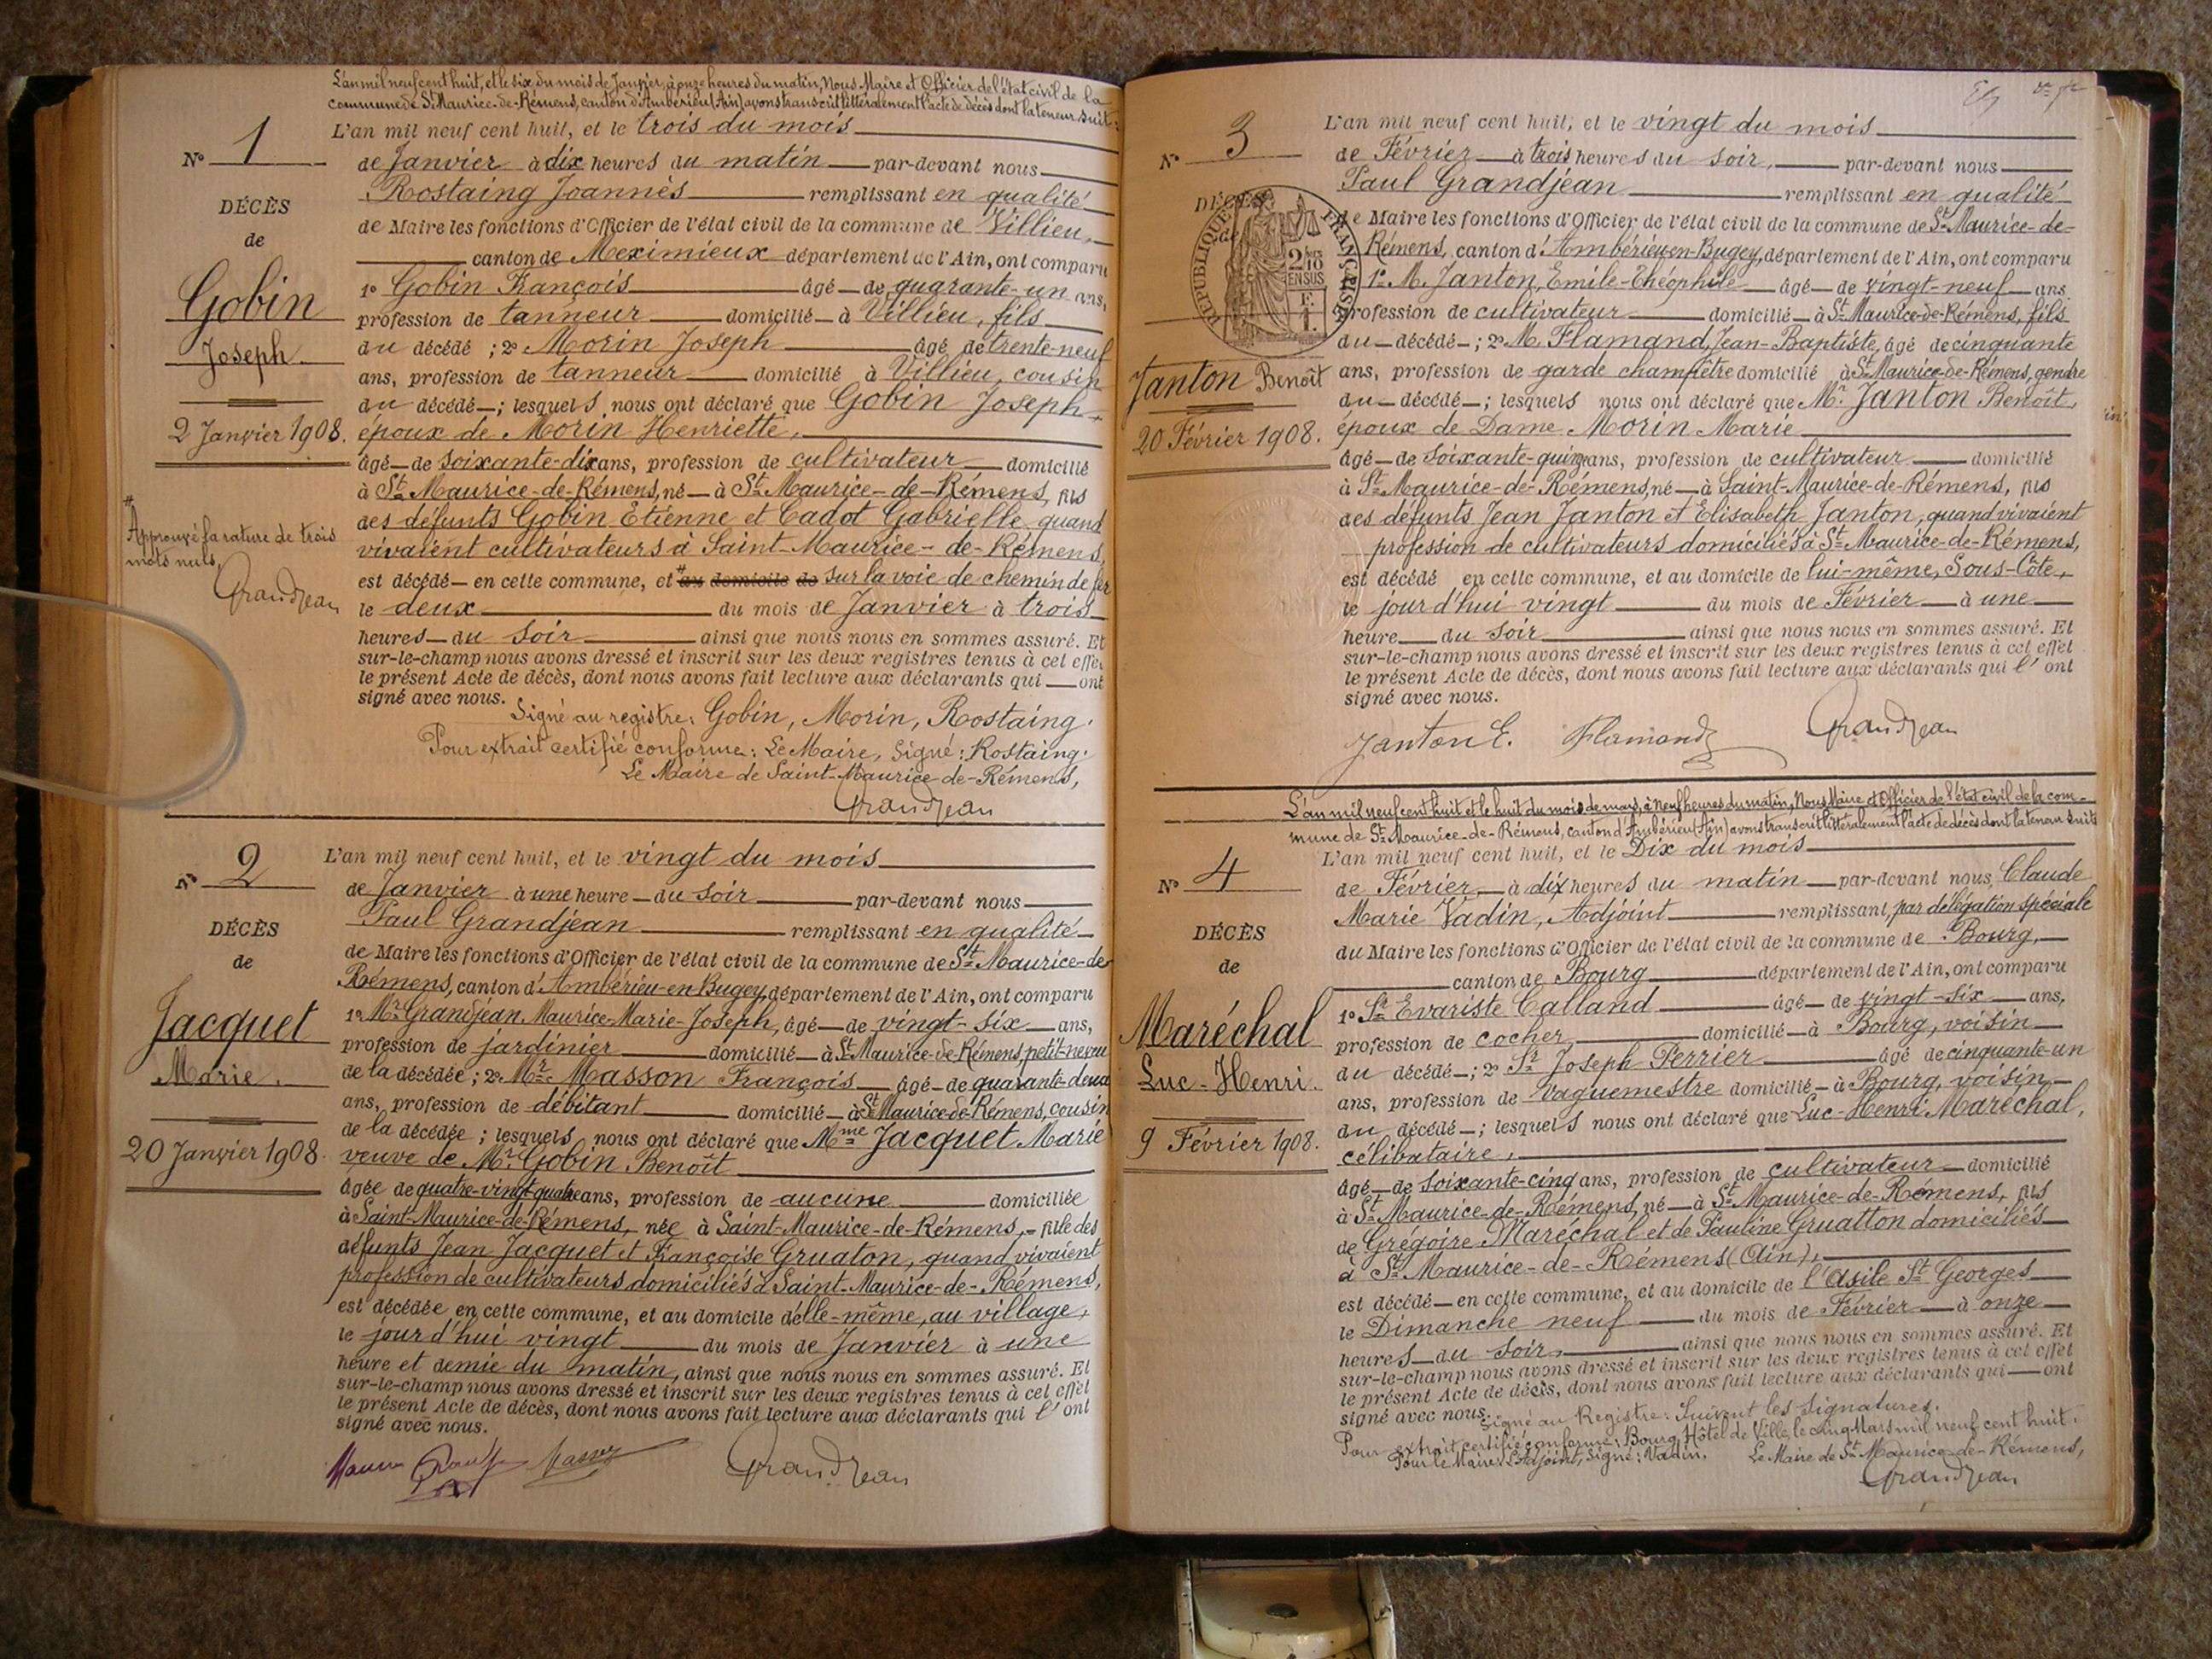 L'an mil neuf cent huit, et le six du mois de Janvier, à onze heures du matin, Nous Maire et Officier de l'état civil de la
commune de St Maurice-de-Rémens, canton d'Ambérieu (Ain) avons transcrit littéralement l'acte de décès dont la teneur suit:
L'an mil neuf cent huit, et le trois du mois
N° 1
DÉCÈS
de
Gobin
Joseph
2 Janvier 1908.
# Approuvé la rature de trois
mots nuls,
Grandjean
de Janvier à dix heures du matin par-devant nous
Rostaing Joannès remplissant en qualité
de Maire les fonctions d'Officier de l'état civil de la commune de Villieu,
canton de Meximieux département de l'Ain, ont comparu
1° Gobin François âgé de quarante-un ans,
profession de tanneur domicilié à Villieu, fils
du décédé ; 2° Morin Joseph âgé de trente-neuf
ans, profession de tanneur domicilié à Villieu, cousin
du décédé ; lesquels nous ont déclaré que Gobin Joseph,
époux de Morin Henriette,
âgé de soixante-dix ans, profession de cultivateur domicilié
à St Maurice-de-Rémens, né à St Maurice-de-Rémens, fils
des défunts Gobin Etienne et Cadot Gabrielle quand
vivaient cultivateurs à Saint-Maurice-de-Rémens,
est décédé en cette commune, et # au domicile de sur la voie de chemin de fer
le deux du mois de Janvier à trois
heures du soir ainsi que nous nous en sommes assuré. Et
sur-le-champ nous avons dressé et inscrit sur les deux registres tenus à cet effet
le présent Acte de décès, dont nous avons fait lecture aux déclarants qui ont
signé avec nous.
Signé au registre: Gobin, Morin, Rostaing.
Pour extrait certifié conforme: Le Maire, Signé: Rostaing.
Le Maire de Saint-Maurice-de-Rémens,
Grandjean
N° 2
DÉCÈS
de
Jacquet
Marie.
20 Janvier 1908.
L'an mil neuf cent huit, et le vingt du mois
de Janvier à une heure du soir par-devant nous
Paul Grandjean remplissant en qualité
de Maire les fonctions d'Officier de l'état civil de la commune de St Maurice-de-
Rémens, canton d'Ambérieu-en-Bugey, département de l'Ain, ont comparu
1° Mr Grandjean Maurice-Marie-Joseph, âgé de vingt-six ans,
profession de jardinier domicilié à St Maurice-de-Rémens, petit-neveu
de la décédée ; 2° Mr Masson François âgé de quarante-deux
ans, profession de débitant domicilié à St Maurice-de-Rémens, cousin
de la décédée ; lesquels nous ont déclaré que Mme Jacquet Marie
veuve de Mr Gobin Benoît
âgée de quatre-vingt-quatre ans, profession de aucune domiciliée
à Saint-Maurice-de-Rémens, née à Saint-Maurice-de-Rémens, fille des
défunts Jean Jacquet et Françoise Gruaton, quand vivaient
profession de cultivateurs domiciliés à Saint-Maurice-de-Rémens,
est décédée en cette commune, et au domicile d'elle-même, au village,
le jourd'hui vingt du mois de Janvier à une
heure et demie du matin, ainsi que nous nous en sommes assuré. Et
sur-le-champ nous avons dressé et inscrit sur les deux registres tenus à cet effet
le présent Acte de décès, dont nous avons fait lecture aux déclarants qui l'ont
signé avec nous.
Masson Grandjean
N° 3
DÉCÈS
de
RÉPUBLIQUE FRANÇAISE
2/10
EN SUS
Janton Benoît
20 Février 1908.
L'an mil neuf cent huit, et le vingt du mois
de Février à trois heures du soir, par-devant nous
Paul Grandjean remplissant en qualité
de Maire les fonctions d'Officier de l'état civil de la commune de St Maurice-de-
Rémens, canton d'Ambérieu-en-Bugey, département de l'Ain, ont comparu
1° M. Janton, Emile-Théophile âgé de vingt-neuf ans
profession de cultivateur domicilié à St Maurice-de-Rémens, fils
du décédé ; 2° M. Flamand, Jean-Baptiste, âgé de cinquante
ans, profession de garde champêtre domicilié à St Maurice-de-Rémens, gendre
du décédé ; lesquels nous ont déclaré que Mr Janton Benoît,
époux de Dame Morin Marie
âgé de soixante-quinze ans, profession de cultivateur domicilié
à St Maurice-de-Rémens, né à Saint-Maurice-de-Rémens, fils
des défunts Jean Janton et Elisabeth Janton, quand vivaient
profession de cultivateurs domiciliés à St Maurice-de-Rémens,
est décédé en cette commune, et au domicile de lui-même, Sous-Côte,
le jourd'hui vingt du mois de Février à une
heure du soir ainsi que nous nous en sommes assuré. Et
sur-le-champ nous avons dressé et inscrit sur les deux registres tenus à cet effet
le présent Acte de décès, dont nous avons fait lecture aux déclarants qui l'ont
signé avec nous.
Janton E. Flamand Grandjean
L'an mil neuf cent huit et le huit du mois de mars, à neuf heures du matin, Nous Maire et Officier de l'état civil de la com-
mune de St Maurice-de-Rémens, canton d'Ambérieu (Ain) avons transcrit littéralement l'acte de décès dont la teneur suit:
N° 4
DÉCÈS
de
Maréchal
Luc-Henri.
9 Février 1908.
L'an mil neuf cent huit, et le Dix du mois
de Février à dix heures du matin par-devant nous, Claude
Marie Vadin, Adjoint remplissant, par délégation spéciale
du Maire les fonctions d'Officier de l'état civil de la commune de Bourg,
canton de Bourg département de l'Ain, ont comparu
1° Sr Evariste Calland âgé de vingt-six ans,
profession de cocher, domicilié à Bourg, voisin
du décédé ; 2° Sr Joseph Perrier âgé de cinquante-un
ans, profession de vaguemestre domicilié à Bourg, voisin
du décédé ; lesquels nous ont déclaré que Luc-Henri Maréchal,
célibataire,
âgé de soixante-cinq ans, profession de cultivateur domicilié
à St Maurice-de-Rémens, né à St Maurice-de-Rémens, fils
de Grégoire Maréchal et de Pauline Gruatton domiciliés
à St Maurice-de-Rémens (Ain),
est décédé en cette commune, et au domicile de l'Asile St Georges
le Dimanche neuf du mois de Février à onze
heures du soir, ainsi que nous nous en sommes assuré. Et
sur-le-champ nous avons dressé et inscrit sur les deux registres tenus à cet effet
le présent Acte de décès, dont nous avons fait lecture aux déclarants qui ont
signé avec nous. Signé au Registre: Suivent les signatures.
Pour extrait certifié conforme: Bourg, Hôtel de Ville, le cinq Mars mil neuf cent huit.
Pour le Maire: L'Adjoint, signé: Vadin. Le Maire de St Maurice-de-Rémens,
Grandjean